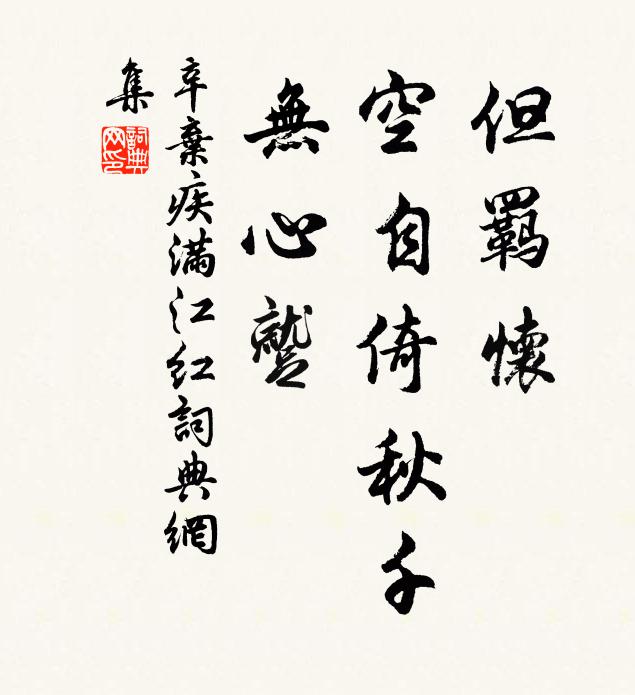 但羈懷
空自倚秋千
無心蹵
辛棄疾滿江紅詞典網
集
詞典网印